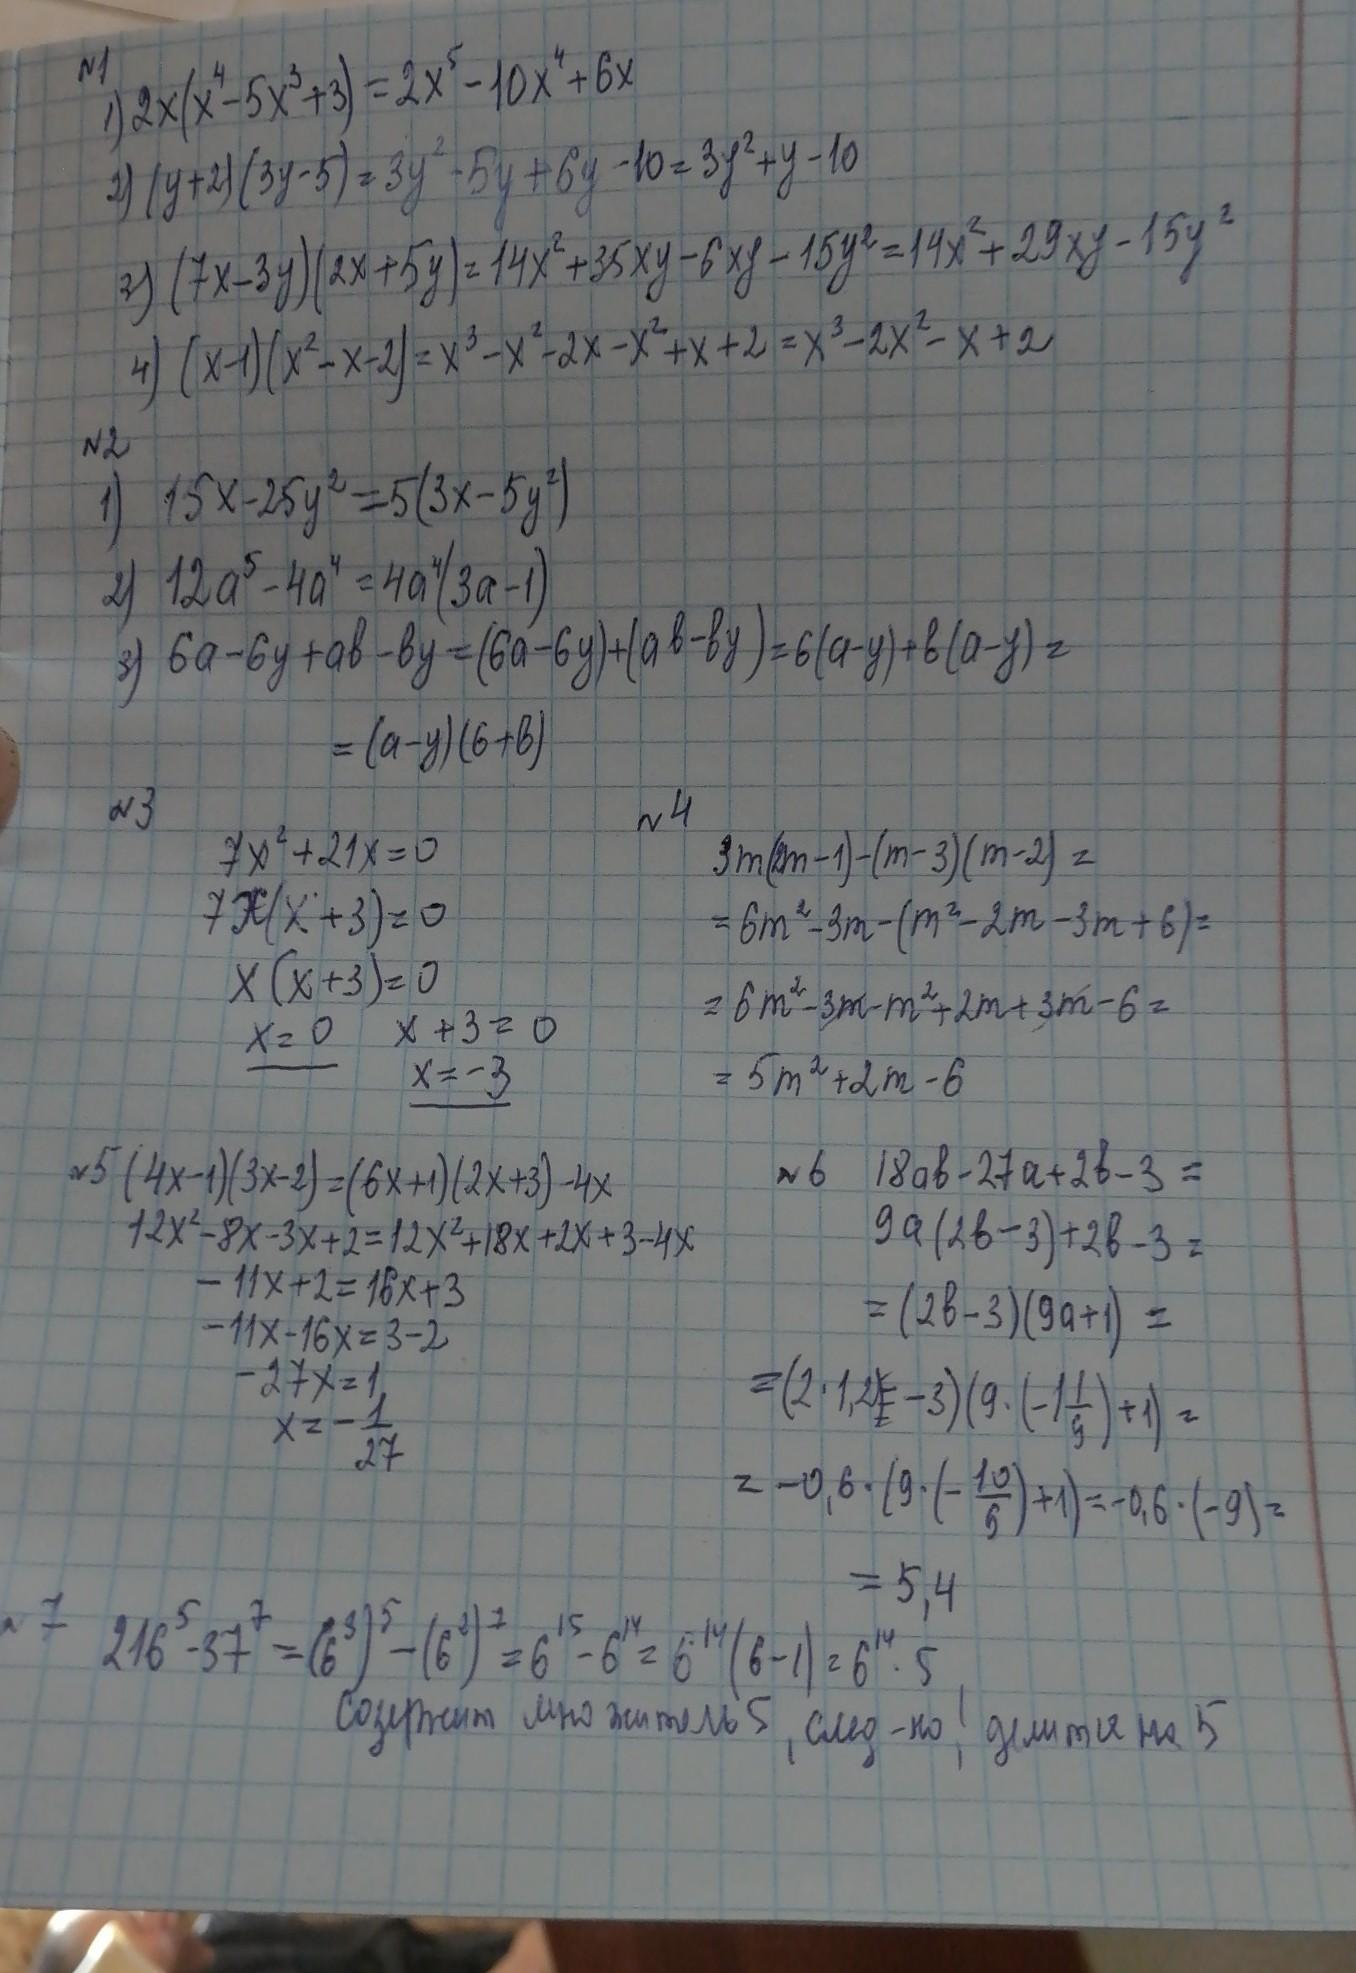 №1
1) 2x(x⁴-5x³+3)=2x⁵-10x⁴+6x
2) (y+2)(3y-5)=3y²-5y+6y-10=3y²+y-10
3) (7x-3y)(2x+5y)=14x²+35xy-6xy-15y²=14x²+29xy-15y²
4) (x-1)(x²-x-2)=x³-x²-2x-x²+x+2=x³-2x²-x+2
№2
1) 15x-25y²=5(3x-5y²)
2) 12a⁵-4a⁴=4a⁴(3a-1)
3) 6a-6y+ab-by=(6a-6y)+(ab-by)=6(a-y)+b(a-y)=
=(a-y)(6+b)
№3
7x²+21x=0
7x(x+3)=0
x(x+3)=0
x=0 x+3=0
x=-3
№4
3m(2m-1)-(m-3)(m-2)=
=6m²-3m-(m²-2m-3m+6)=
=6m²-3m-m²+2m+3m-6=
=5m²+2m-6
№5 (4x-1)(3x-2)=(6x+1)(2x+3)-4x
12x²-8x-3x+2=12x²+18x+2x+3-4x
-11x+2=16x+3
-11x-16x=3-2
-27x=1
x=-1/27
№6 18ab-27a+2b-3=
9a(2b-3)+2b-3=
=(2b-3)(9a+1)=
=(2·1,2-3)(9·(-1 1/9)+1)=
=-0,6·(9·(-10/9)+1)=-0,6·(-9)=
=5,4
№7 216⁵-37⁷=(6³)⁵-(6²)⁷=6¹⁵-6¹⁴=6¹⁴(6-1)=6¹⁴·5,
содержит множитель 5, след-но, делится на 5